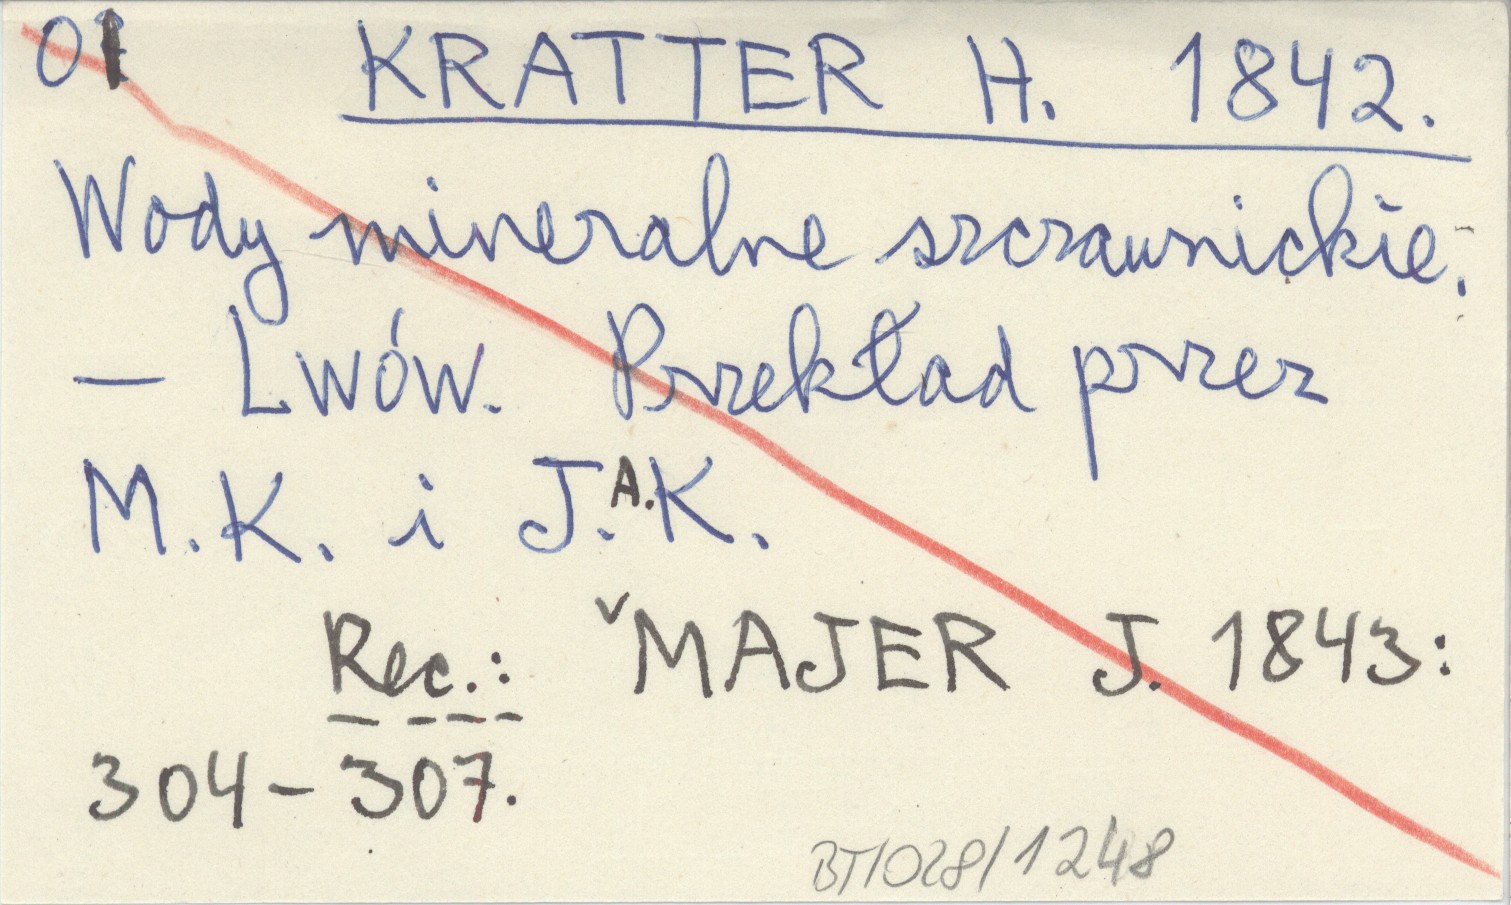 01 KRATTER H. 1842.
Wody mineralne szczawnickie.
— Lwów. Przekład przez
M.K. i J.A.K.
Rec.: ˇMAJER J. 1843:
304-307.
BT/028/1248